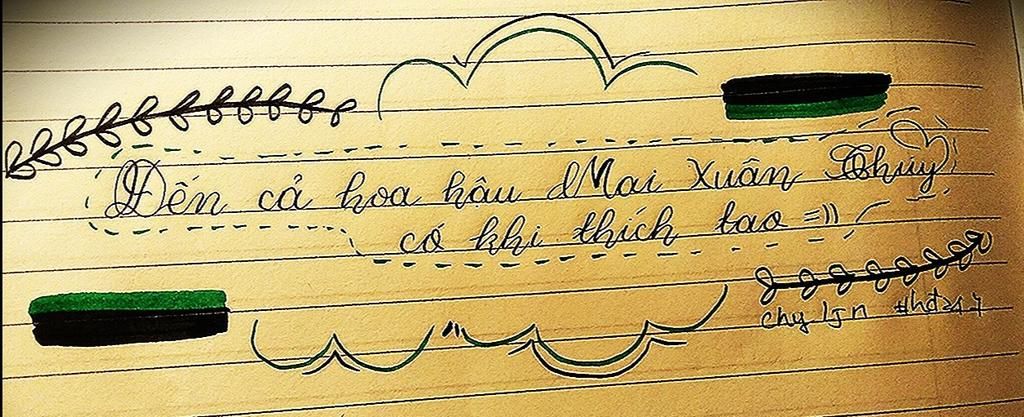 Đến cả hoa hậu Mai Xuân Thuý
có khi thích tao =))
chy ljn